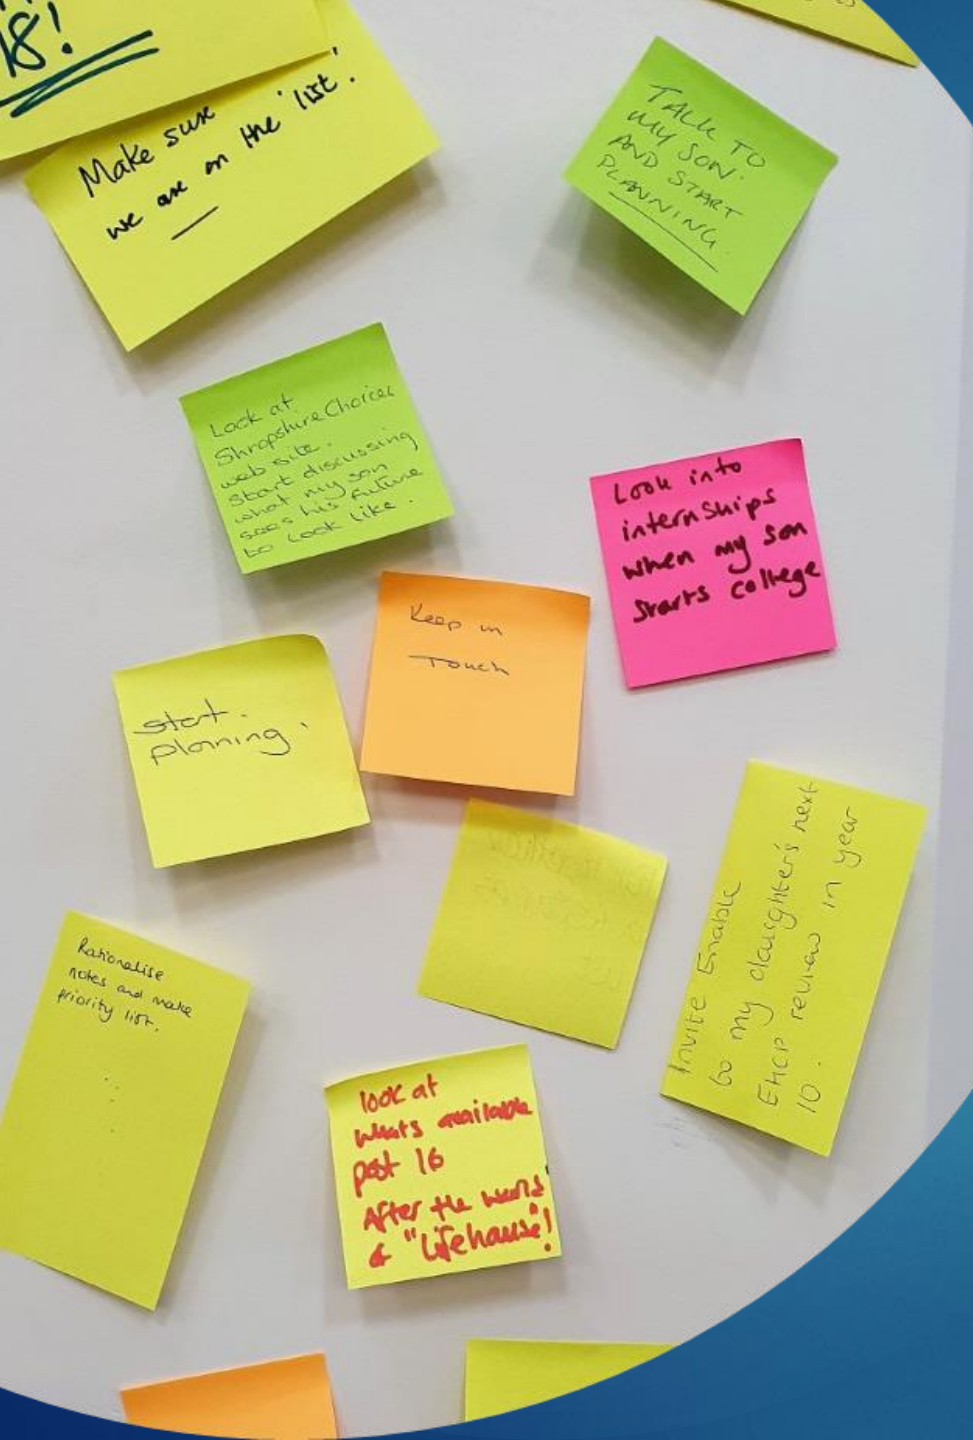 18!
Make sure
we are on the 'list'.
TALK TO
MY SON.
AND START
PLANNING.
Look at
Shropshire Choices
web site.
Start discussing
what my son
sees his future
to Look Like.
Look into
internships
when my son
starts college
Keep in
Touch
start.
planning.
Invite Enable
to my daughter's next
EHCP review in year
10.
Rationalise
notes and make
priority list.
look at
whats available
post 16
After the world
of "Lifehouse"!